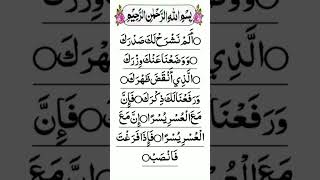 بِسْمِ اللهِ الرَّحْمٰنِ الرَّحِيْمِ
اَلَمْ نَشْرَحْ لَكَ صَدْرَكَ
وَوَضَعْنَا عَنْكَ وِزْرَكَ
الَّذِيْ اَنْقَضَ ظَهْرَكَ
وَرَفَعْنَا لَكَ ذِكْرَكَ فَاِنَّ
مَعَ الْعُسْرِ يُسْرًا اِنَّ مَعَ
الْعُسْرِ يُسْرًا فَاِذَا فَرَغْتَ
فَانْصَبْ